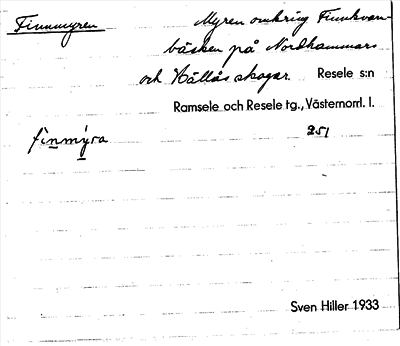 Finnmyren
Myren omkring Finnkvarn-
bäcken på Nordhammars
och Hällås skogar. Resele s:n
Ramsele och Resele tg., Västernorrl. l.
finmýra 251
Sven Hiller 1933